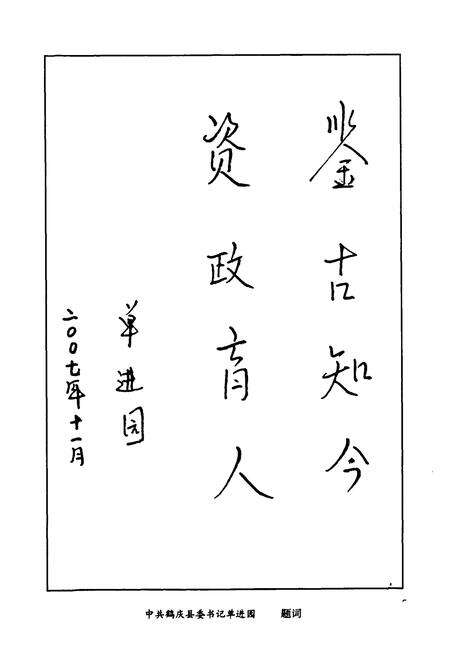 鉴古知今
资政育人
单进园
二00七年十一月
中共鹤庆县委书记单进园 题词